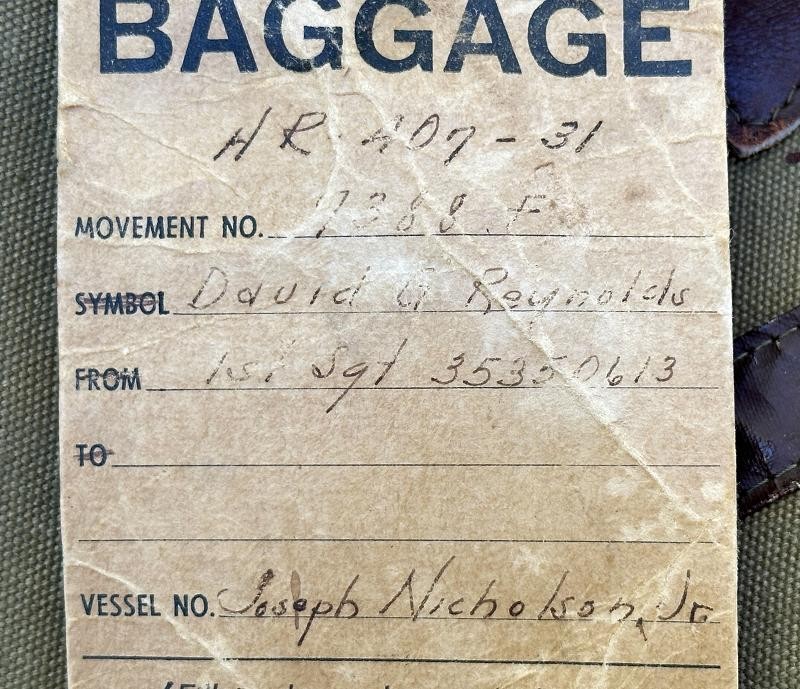 BAGGAGE
HR-407-31
MOVEMENT NO. 7388 F
SYMBOL David G Reynolds
FROM 1st Sgt 35350613
TO
VESSEL NO. Joseph Nicholson, Jr